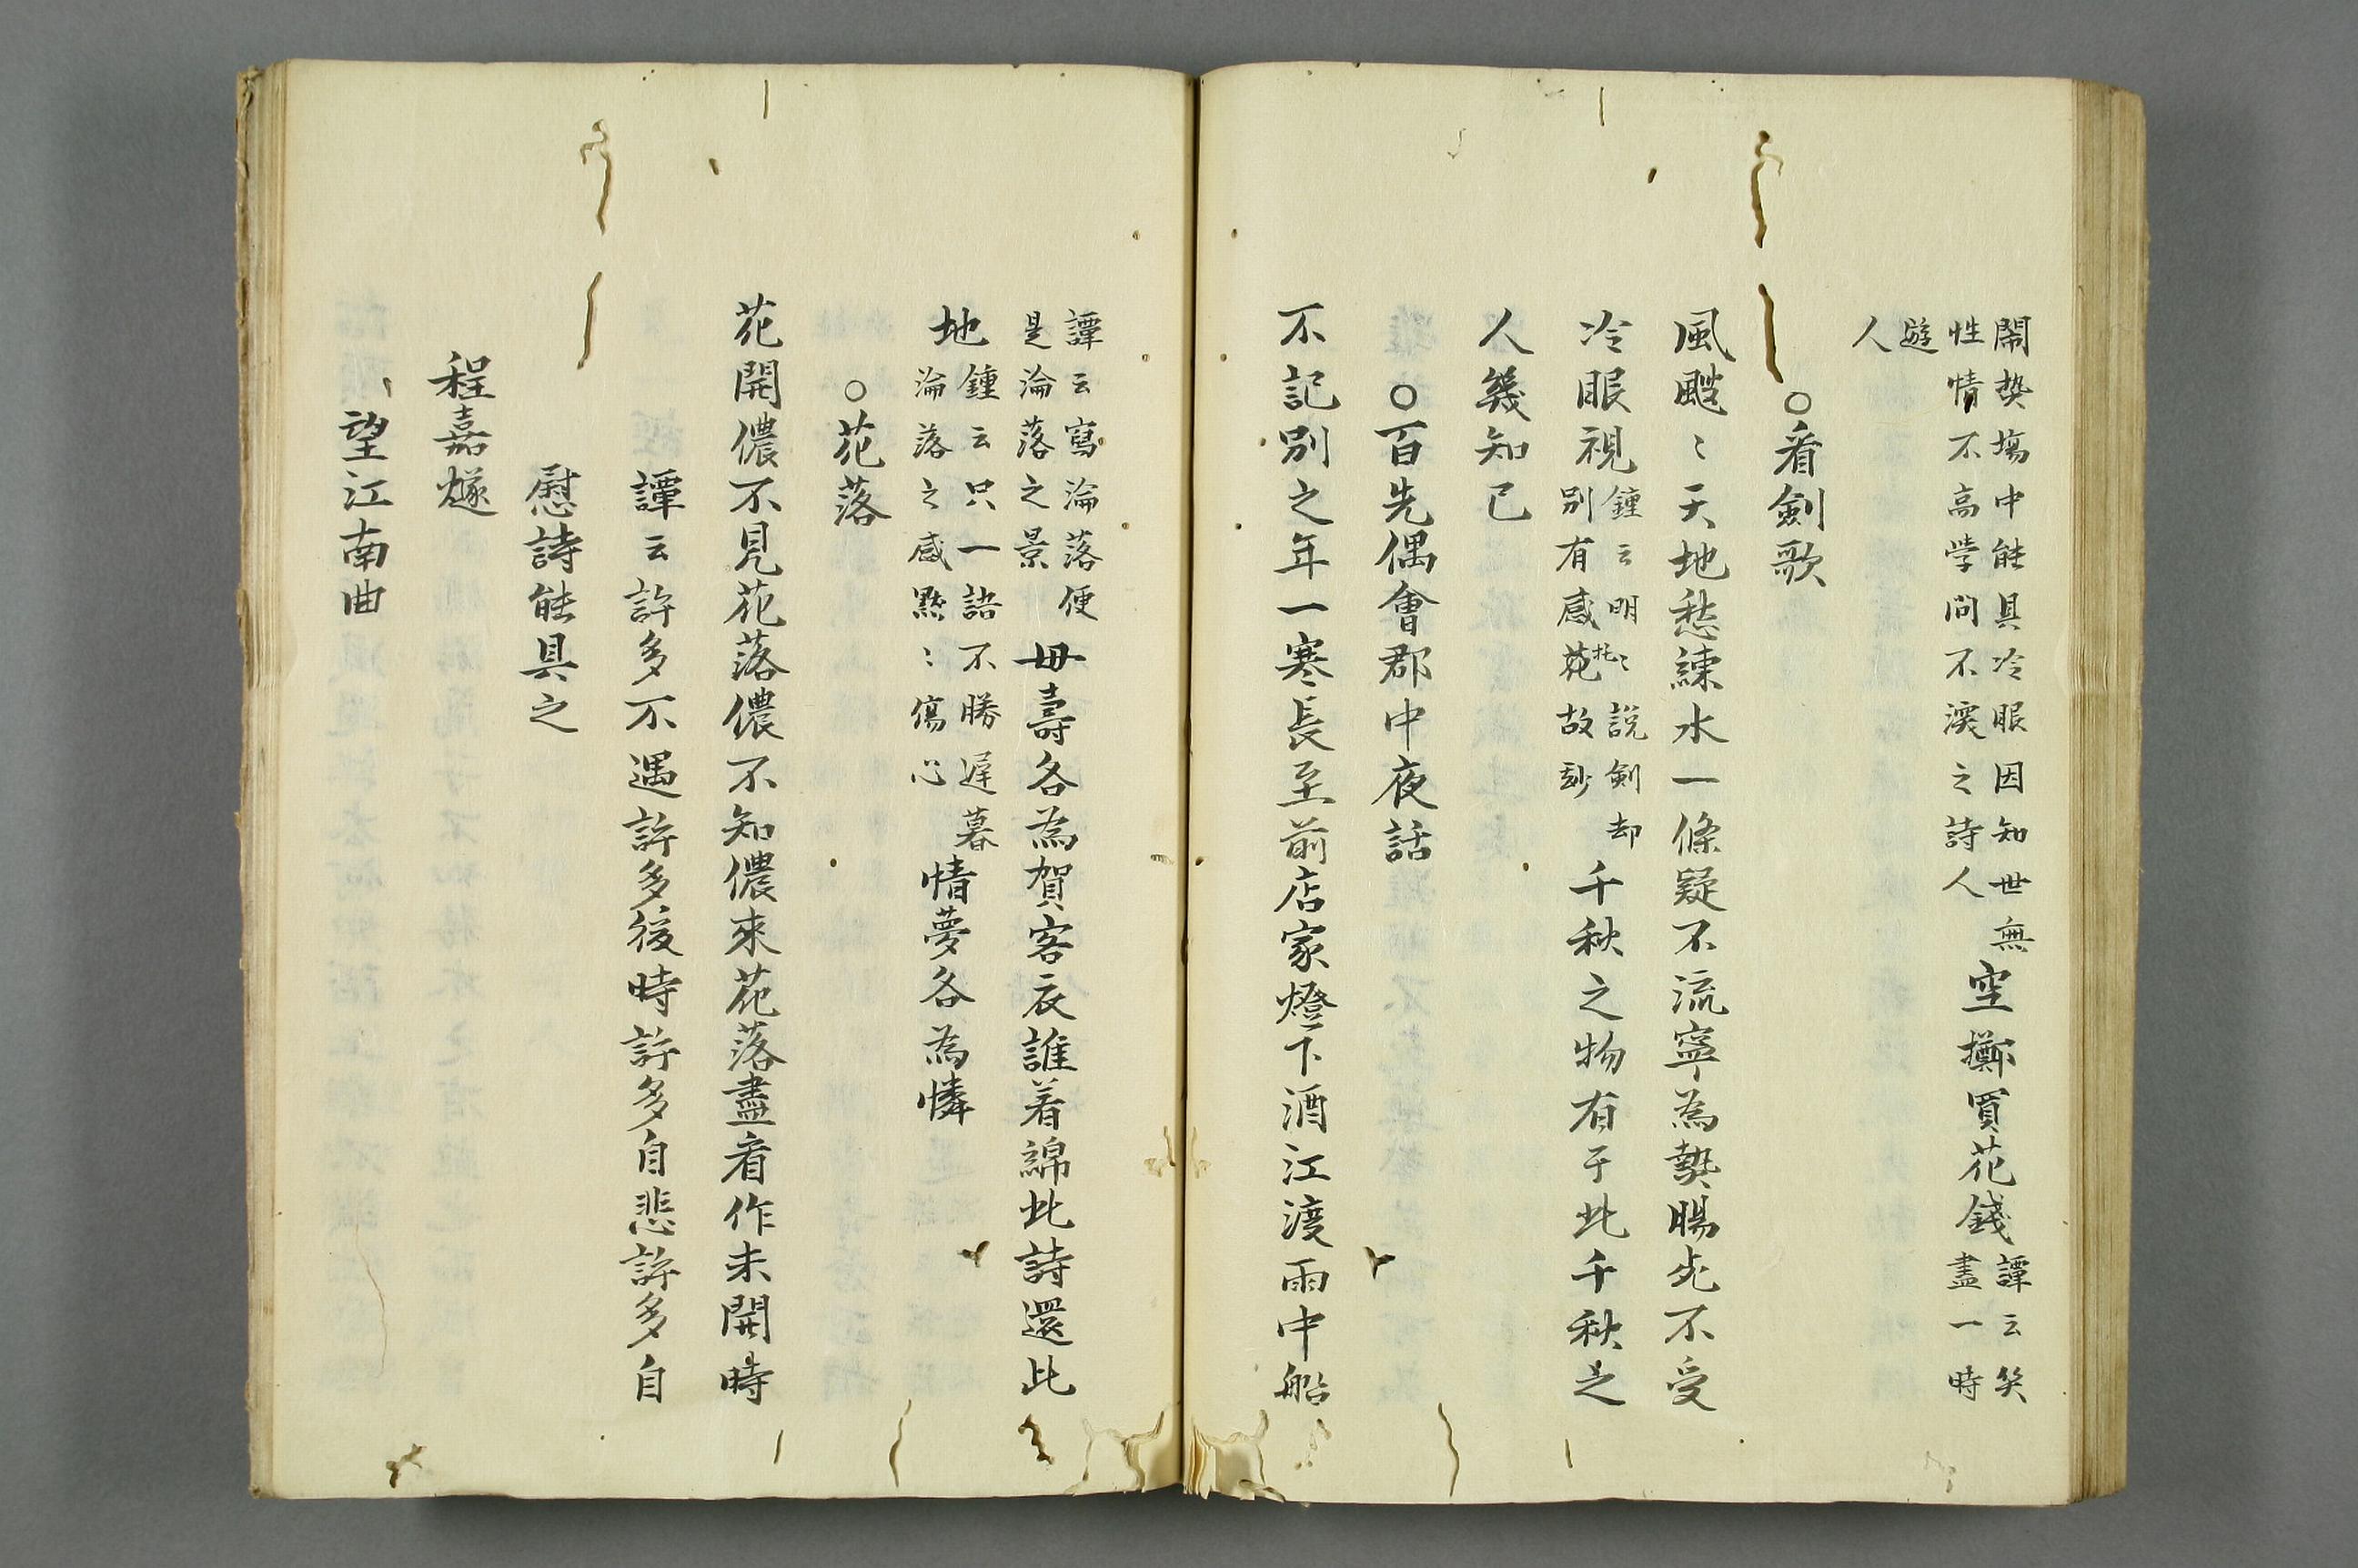 鬧热場中能具冷眼因知世無
性情不高学問不深之詩人
空擲買花錢
譚云笑
盡一時
遊
人
○看劍歌
風颼〻天地愁練水一條疑不流寧為熱腸死不受
冷眼視
鍾云明〻說劍却
別有感托故玅
千秋之物有于此千秋之
人幾知已
○百先偶會郡中夜話
不記別之年一寒長至前店家燈下酒江渡雨中船
譚云寫淪落便
是淪落之景
毋壽各為賀客衣誰着綿此詩還此
地
鍾云只一語不勝遅暮
淪落之感黙〻傷心
情夢各為憐
○花落
花開儂不見花落儂不知儂來花落盡看作未開時
譚云許多不遇許多後時許多自悲許多自
慰詩能具之
程嘉燧
望江南曲